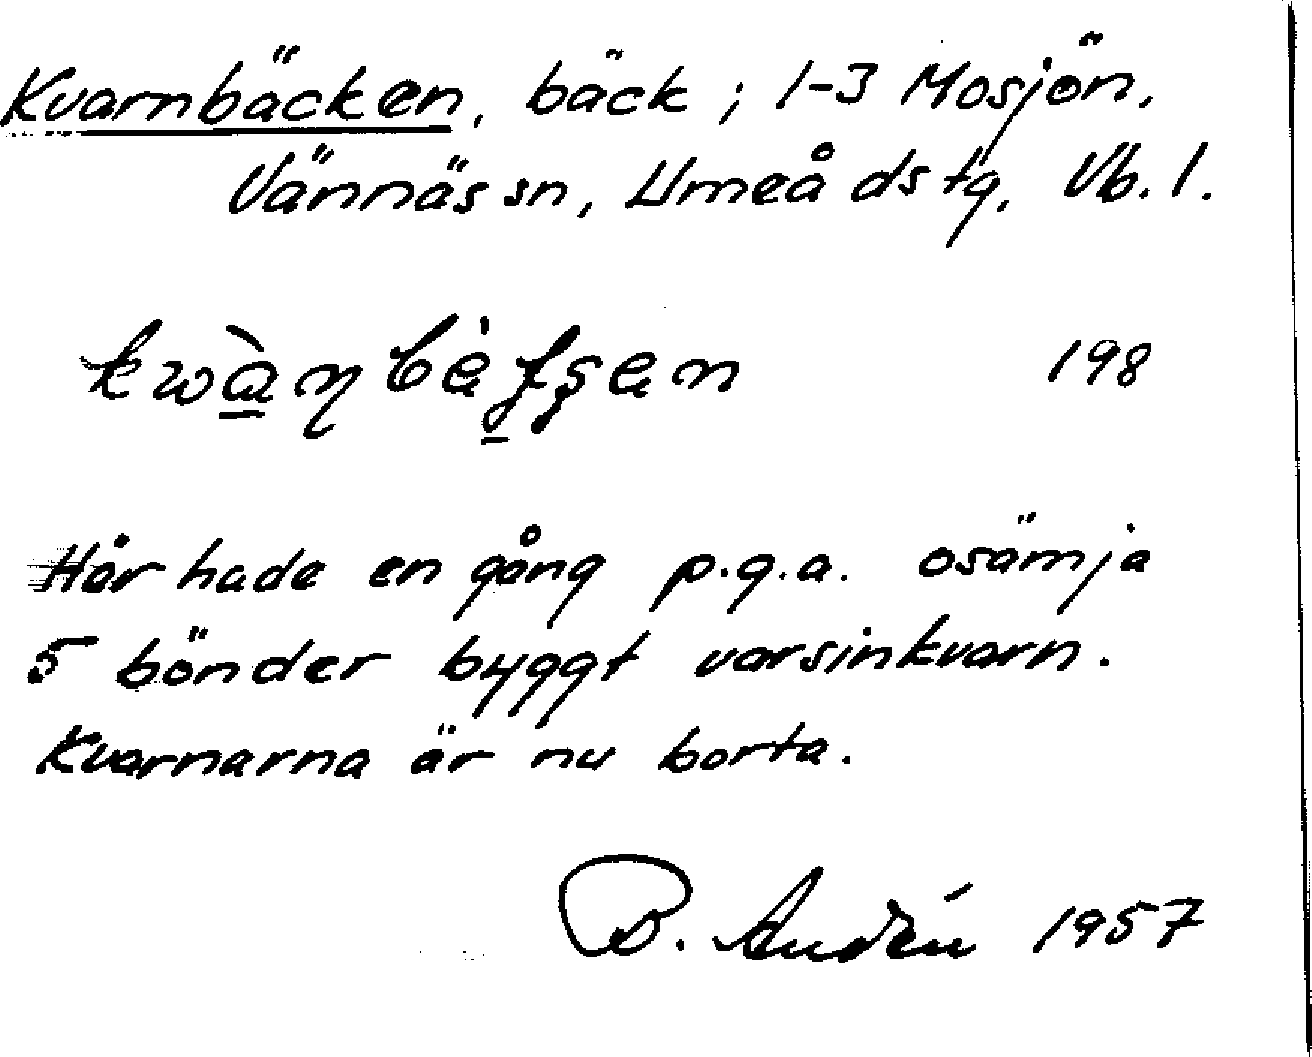 Kvarnbäcken, bäck; 1-3 Mosjön,
Vännäs sn, Umeå dstg, Vb. l.
198
Här hade en gång p.g.a. osämja
5 bönder byggt varsinkvarn.
Kvarnarna är nu borta.
B. Andén 1957